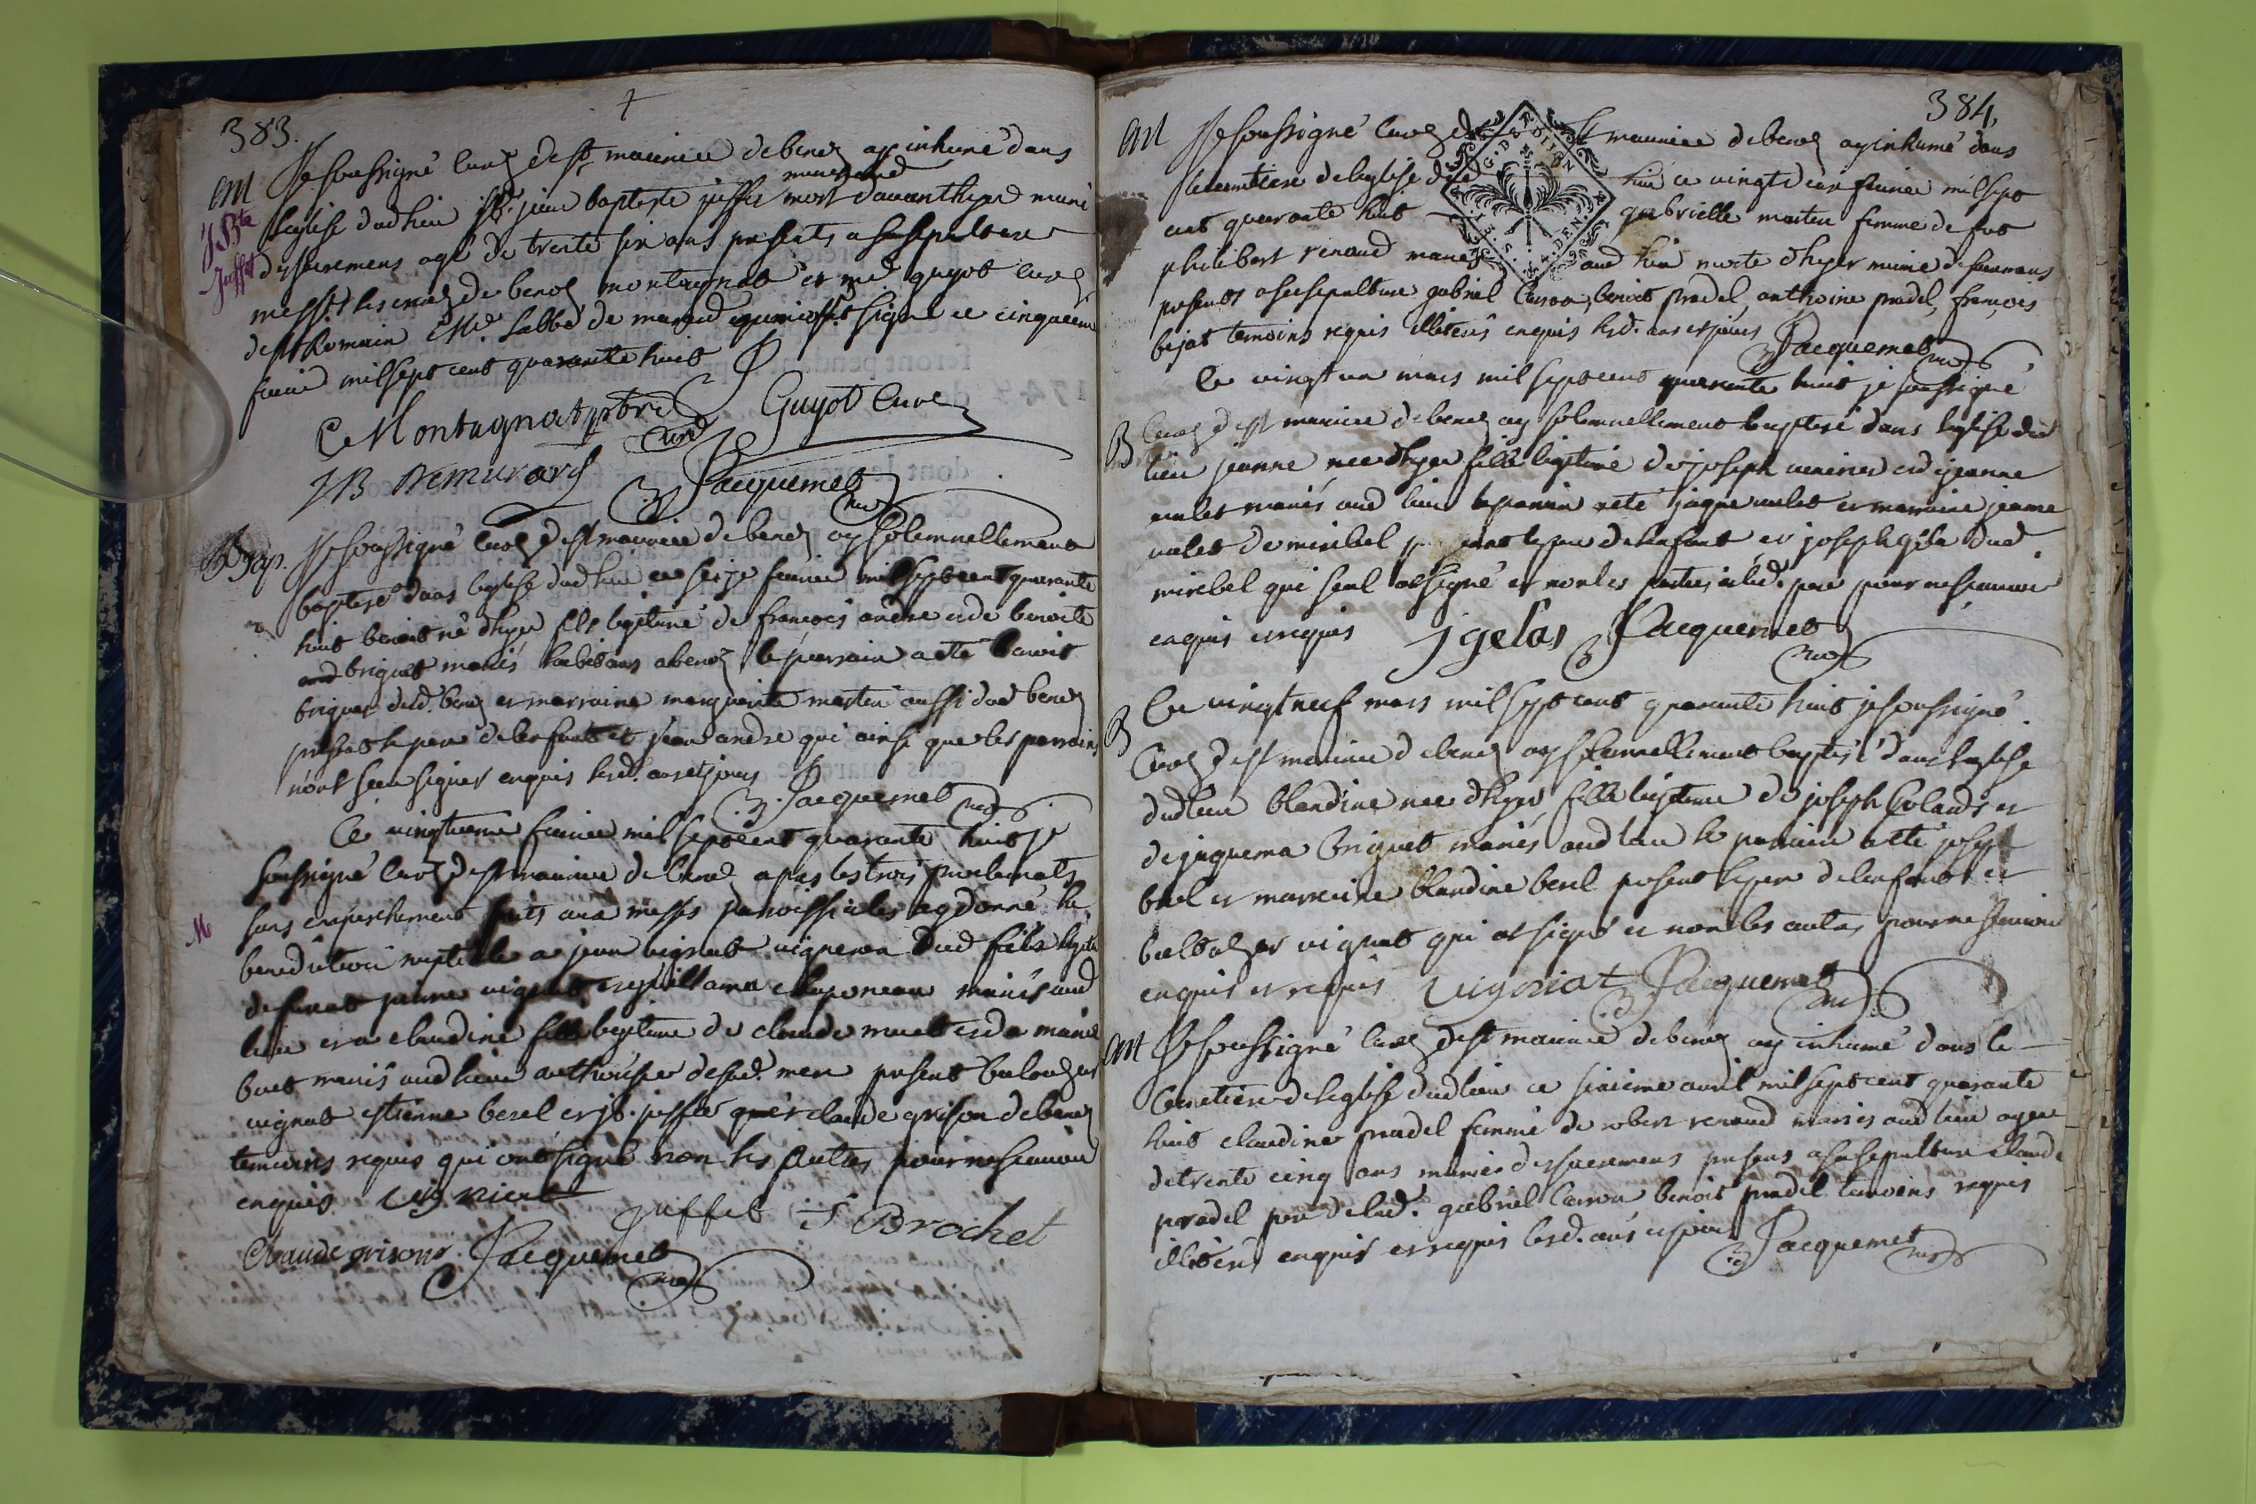 383.
mt Je soussigné curé de st maurice de beno ay inhumé dans
J Bte Juffet
l'eglise dud lieu sr. jean baptiste juffet marchand mort d'avanthyer muni
des sacremens agé de trente six ans presents a sa sepulture
messrs les curés de beno montagnat et mr guyot curé
de st Romain Mr. l'abbé de murard qui ont signé ce cinquieme
fevrier mil sept cent quarante huit
C Montagnat ptre curé Guyot curé
J B Demurard Jacquemet curé
Bap. Je soussigné curé de st maurice de beno ay solemnellement
baptisé dans l'eglise dud lieu ce seize fevrier mil sept cent quarante
huit benoit né d'hyer fils legitime de françois andre et de benoite
briguet mariés habitans a beno le parrain a eté benoit
briguet dud. beno et marraine marguerite martin aussi dud beno
present le pere de l'enfant et jean andre qui ainsi que les parrains
n'ont sceu signer enquis lesd. an et jours Jacquemet curé
Ce vingtieme fevrier mil sept cent quarante huit je
soussigné curé de st maurice de beno apres les trois proclamats
M sans empechement faits aux messes paroissiales ay donné la
benediction nuptiale a jean vignat vigneron dud fils legitime
de furent pierre vignat et guillauma chaponeau mariés aud
lieu et a claudine fille legitime de claude muet et de marie
buet mariés aud lieu authorisée de sad. mere present balthazar
vignat estienne berel et jb. juffet claude grison de beno
temoins requis qui ont signé non les autres pour ne sçavoir
enquis Vignat Juffet Brochet
Claude grison Jacquemet curé
384.
mt Je soussigné curé de st maurice de beno ay inhumé dans
le cemetiere de l'eglise dud lieu ce vingt deux fevrier mil sept
cent quarante huit gabrielle martin femme de feu
philibert renaud mariés aud lieu morte d'hyer munie des sacremens
presents a sa sepulture gabriel carron, benoit pradel, anthoine pradel, françois
bejat temoins requis illiterés enquis lesd. ans et jours Jacquemet curé
Ce vingt un mars mil sept cent quarante huit je soussigné
B curé de st maurice de beno ay solemnellement baptisé dans l'eglise dud
lieu jeanne née d'hyer fille legitime de joseph et de jeanne
mulet mariés aud lieu le parrain a eté jaque mulet et marraine jeanne
mulet de miribel present le pere de l'enfant et joseph gelas dud
miribel qui seul a signé et non les parties ny led. pere pour ne sçavoir
enquis et requis J gelas Jacquemet curé
B Ce vingt neuf mars mil sept cent quarante huit je soussigné
curé de st maurice de beno ay solemnellement baptisé dans l'eglise
dud lieu blandine née d'hyer fille legitime de joseph Coland et
de jaquema briguet mariés aud lieu le parrain a eté joseph
berel et marraine blandine berel present le pere de l'enfant et
baltazar vignat qui a signé et non les autres pour ne sçavoir
enquis et requis Vigniat Jacquemet curé
mt Je soussigné curé de st maurice de beno ay inhumé dans le
cemetiere de l'eglise dud lieu ce sixieme avril mil sept cent quarante
huit claudine pradel femme de robert renaud mariés aud lieu agée
de trente cinq ans munie des sacremens presens a sa sepulture claude
pradel pere de lad. gabriel carron benoit pradel temoins requis
illiterés enquis et requis lesd. ans et jours Jacquemet curé
G. D. DIJON
DEN.